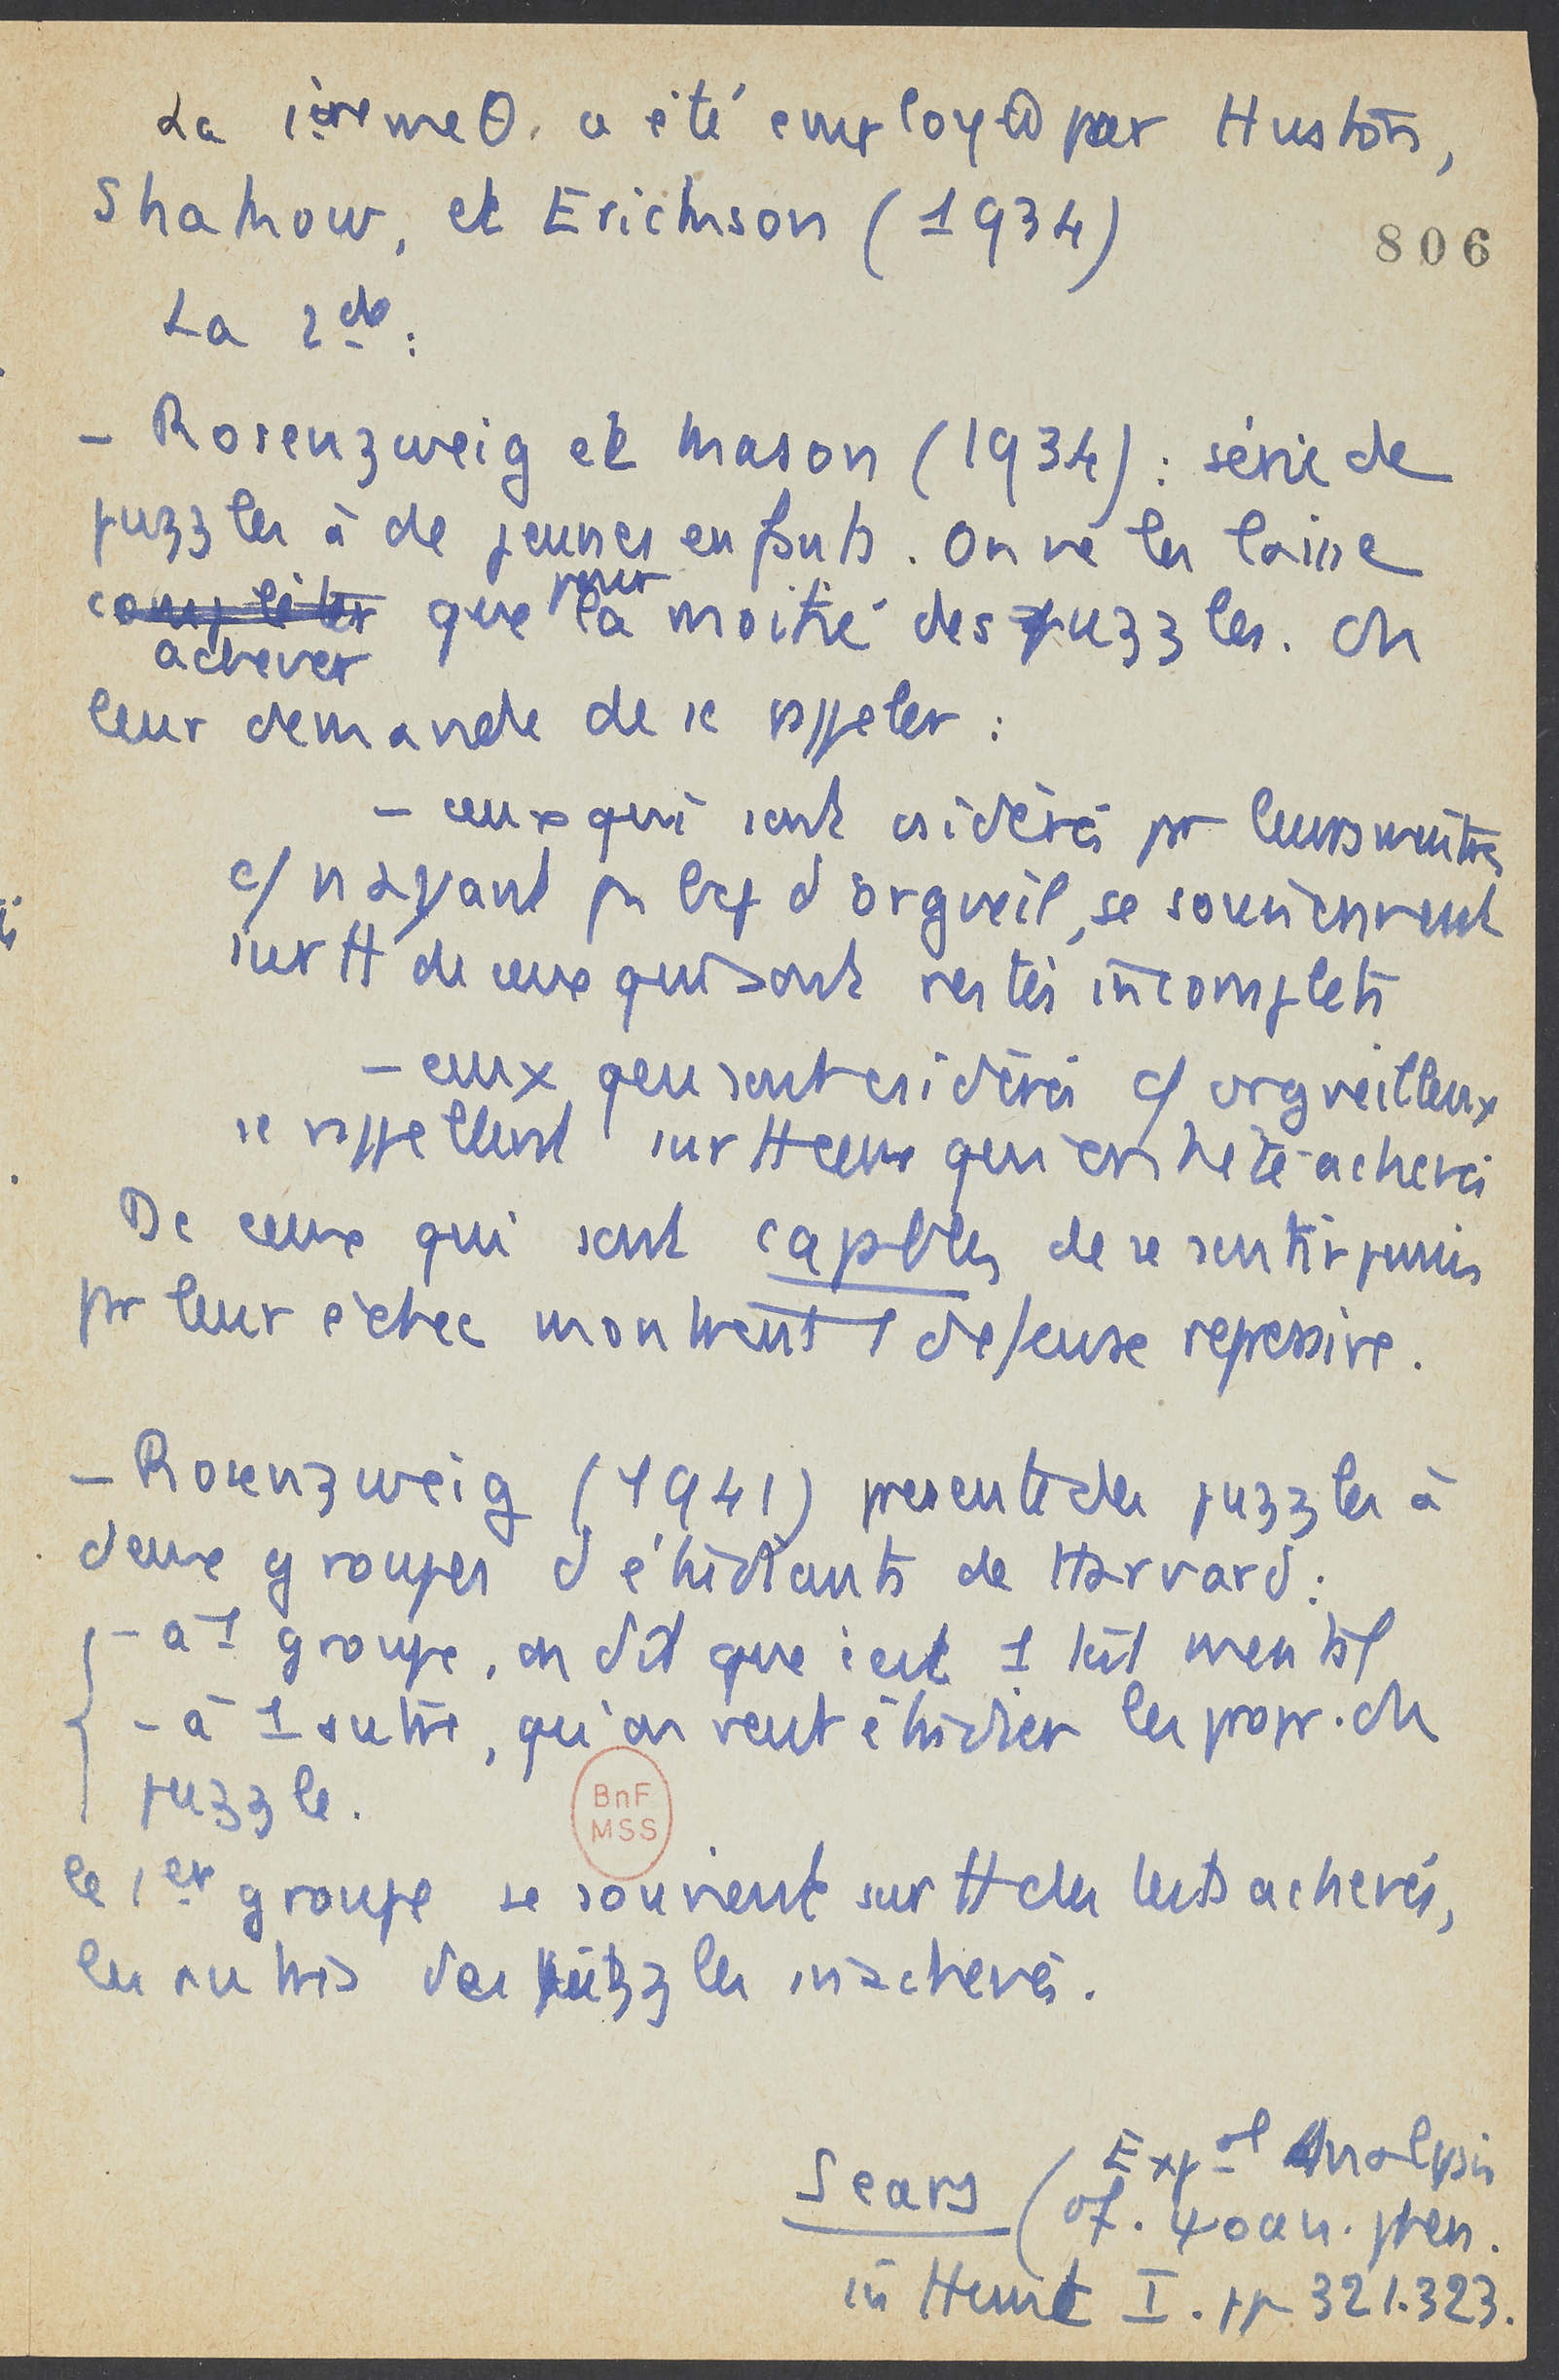 La 1ère meθ. a été employée par Huston,
Shakow, et Erickson (1934)
806
La 2de :
- Rosenzweig et Mason (1934) : série de
puzzles à de jeunes enfants. On ne les laisse
completer que pour la moitié des puzzles. On
achever
leur demande de se rappeler :
- ceux qui sont csidérés par leurs maîtres
c/ n'ayant pas bcp d'orgueil, se souviennent
surtt de ceux qui sont restés incomplets
- ceux qui sont csidérés c/ orgueilleux
se rappellent surtt ceux qui ont été achevés
De ceux qui sont capables de se sentir punis
par leur échec montrent 1 défense repressive.
- Rosenzweig (1941) presente des puzzles à
deux groupes d'étudiants de Harvard :
- à 1 groupe, on dit que c'est 1 test mental
- à 1 autre, qu'on veut étudier les propr. du
puzzle.
le 1er groupe se souvient surtt des tests achevés,
les autres des puzzles inachevés.
Sears (Expal Analysis
of. ψoan. phen.
in Hunt I. pp 321.323.
BnF
MSS